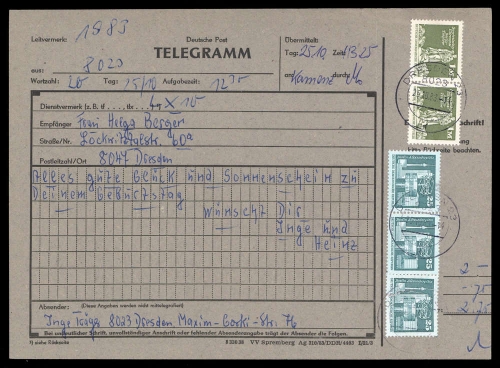 Leitvermerk: 1983
Deutsche Post
TELEGRAMM
aus: 8023
Wortzahl: 20 Tag: 25/10 Aufgabezeit: 12 35
Übermittelt:
Tag: 25.10 Zeit: 1325
an: Kamenz durch:
Dienstvermerk (z. B. tf
Empfänger Frau Helga Berger
Straße/Nr. Lockwitztalstr. 60a
Postleitzahl/Ort 8047 Dresden
Alles gute Glück und Sonnenschein zu
Deinem Geburtstag
wünscht Dir
Inge und
Heinz
Absender: (Diese Angaben werden nicht mittelegrafiert)
Inge 8023 Dresden Maxim-Gorki-Str. 76
Bei undeutlicher Schrift, unvollständiger Anschrift oder fehlender Absenderangabe trägt der Absender die Folgen.
1) siehe Rückseite
VV Spremberg Ag 310/83/DDR/4493
25
25
25
2 –
– 75
2 75